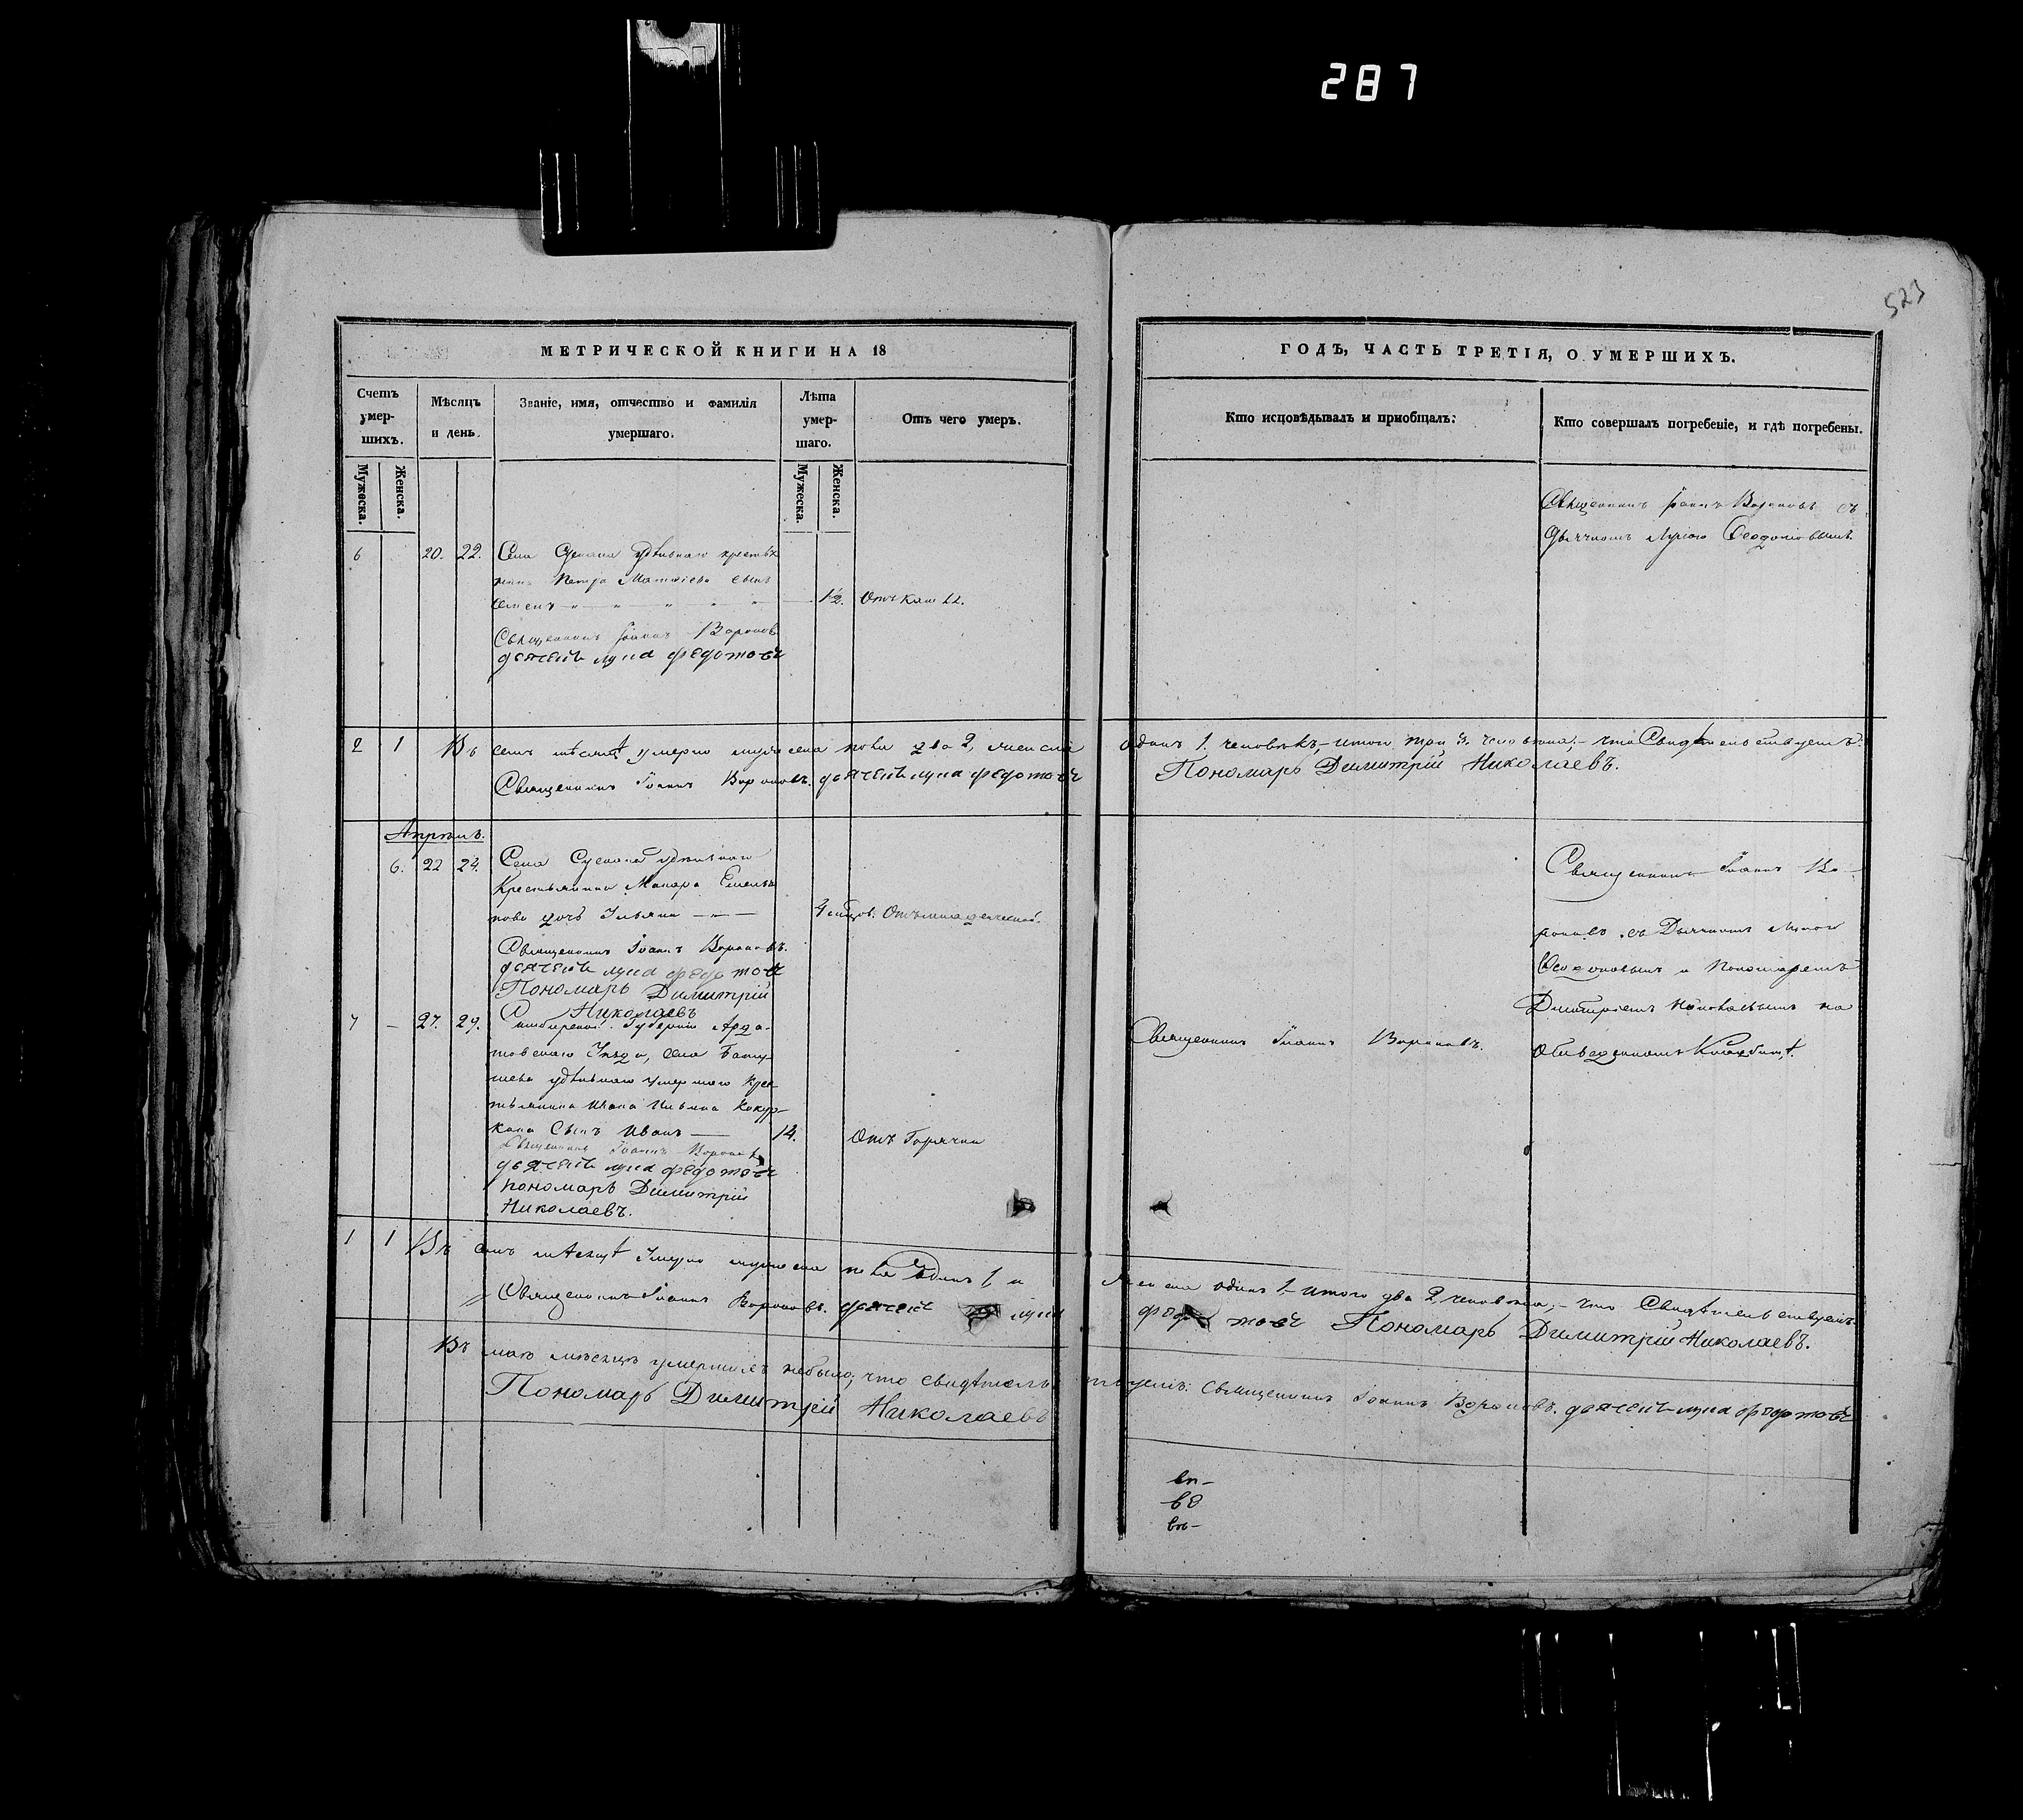 287
523
МЕТРИЧЕСКОЙ КНИГИ НА 18
ГОДЪ, ЧАСТЬ ТРЕТІЯ, О УМЕРШИХЪ.
Счетъ умер-шихъ.
Мѣсяцъ и день.
Званіе, имя, отчество и фамилія умершаго.
Лѣта умер-шаго.
Отъ чего умеръ.
Кто исповѣдывалъ и пріобщалъ:
Кто совершалъ погребеніе, и гдѣ погребены.
Мужеска.
Женска.
Мужеска.
Женска.
Священникъ Іоаннъ Вороновъ съ
Дьячкомъ Лукою
6 20. 22. Села удѣльнаго крестья
нина Петра Матвіева сынъ
Семенъ 1/2. Отъ
Священникъ Іоаннъ Вороновъ
дьячекъ лука федотовъ
2 1 Въ семъ мѣсяцѣ умерло мужеска пола два 2, женска одинъ 1. человѣкъ,- итого три 3. человѣка,- что Свидѣтельствуетъ:
Священникъ Іоаннъ Вороновъ. дьячекъ лука федотовъ Пономарь Димитрій Николаевъ.
Апрѣль.
6. 22 24. Села удѣльнаго
Крестьянина Макара Емелья
нова дочь Ульяна 4 Отъ младенческой.
Священникъ Іоаннъ Вороновъ.
дьячекъ лука федотовъ
Пономарь Димитрій
Николаевъ
Священникъ Іоаннъ Во-
роновъ съ Дьячкомъ Лукою
и Пономаремъ
Димитріемъ Николаевымъ на
Отведенномъ Кладбищѣ.
7 – 27. 29. Симбирской Губерніи Арда-
товскаго Уѣзда, села
удѣльнаго умершаго Крес
тьянина Ивана Ильина Кокур-
кана Сынъ Иванъ 14. Отъ Горячки
Священникъ Іоаннъ Вороновъ.
Священникъ Іоаннъ Вороновъ
дьячекъ лука федотовъ
пономарь Димитрій
Николаевъ.
1 1 Въ семъ мѣсяцѣ Умерло мужеска пола Одинъ 1 и женска одинъ 1.- итого два 2, человѣка,- что Свидѣтельствуемъ
Священникъ Іоаннъ Вороновъ. дьячекъ лука федотовъ Пономарь Димитрій Николаевъ.
Въ маѣ мѣсяцѣ умершихъ небыло, что свидѣтельствуемъ: Священникъ Іоаннъ Вороновъ. дьячекъ лука федотовъ
Пономарь Димитрій Николаевъ